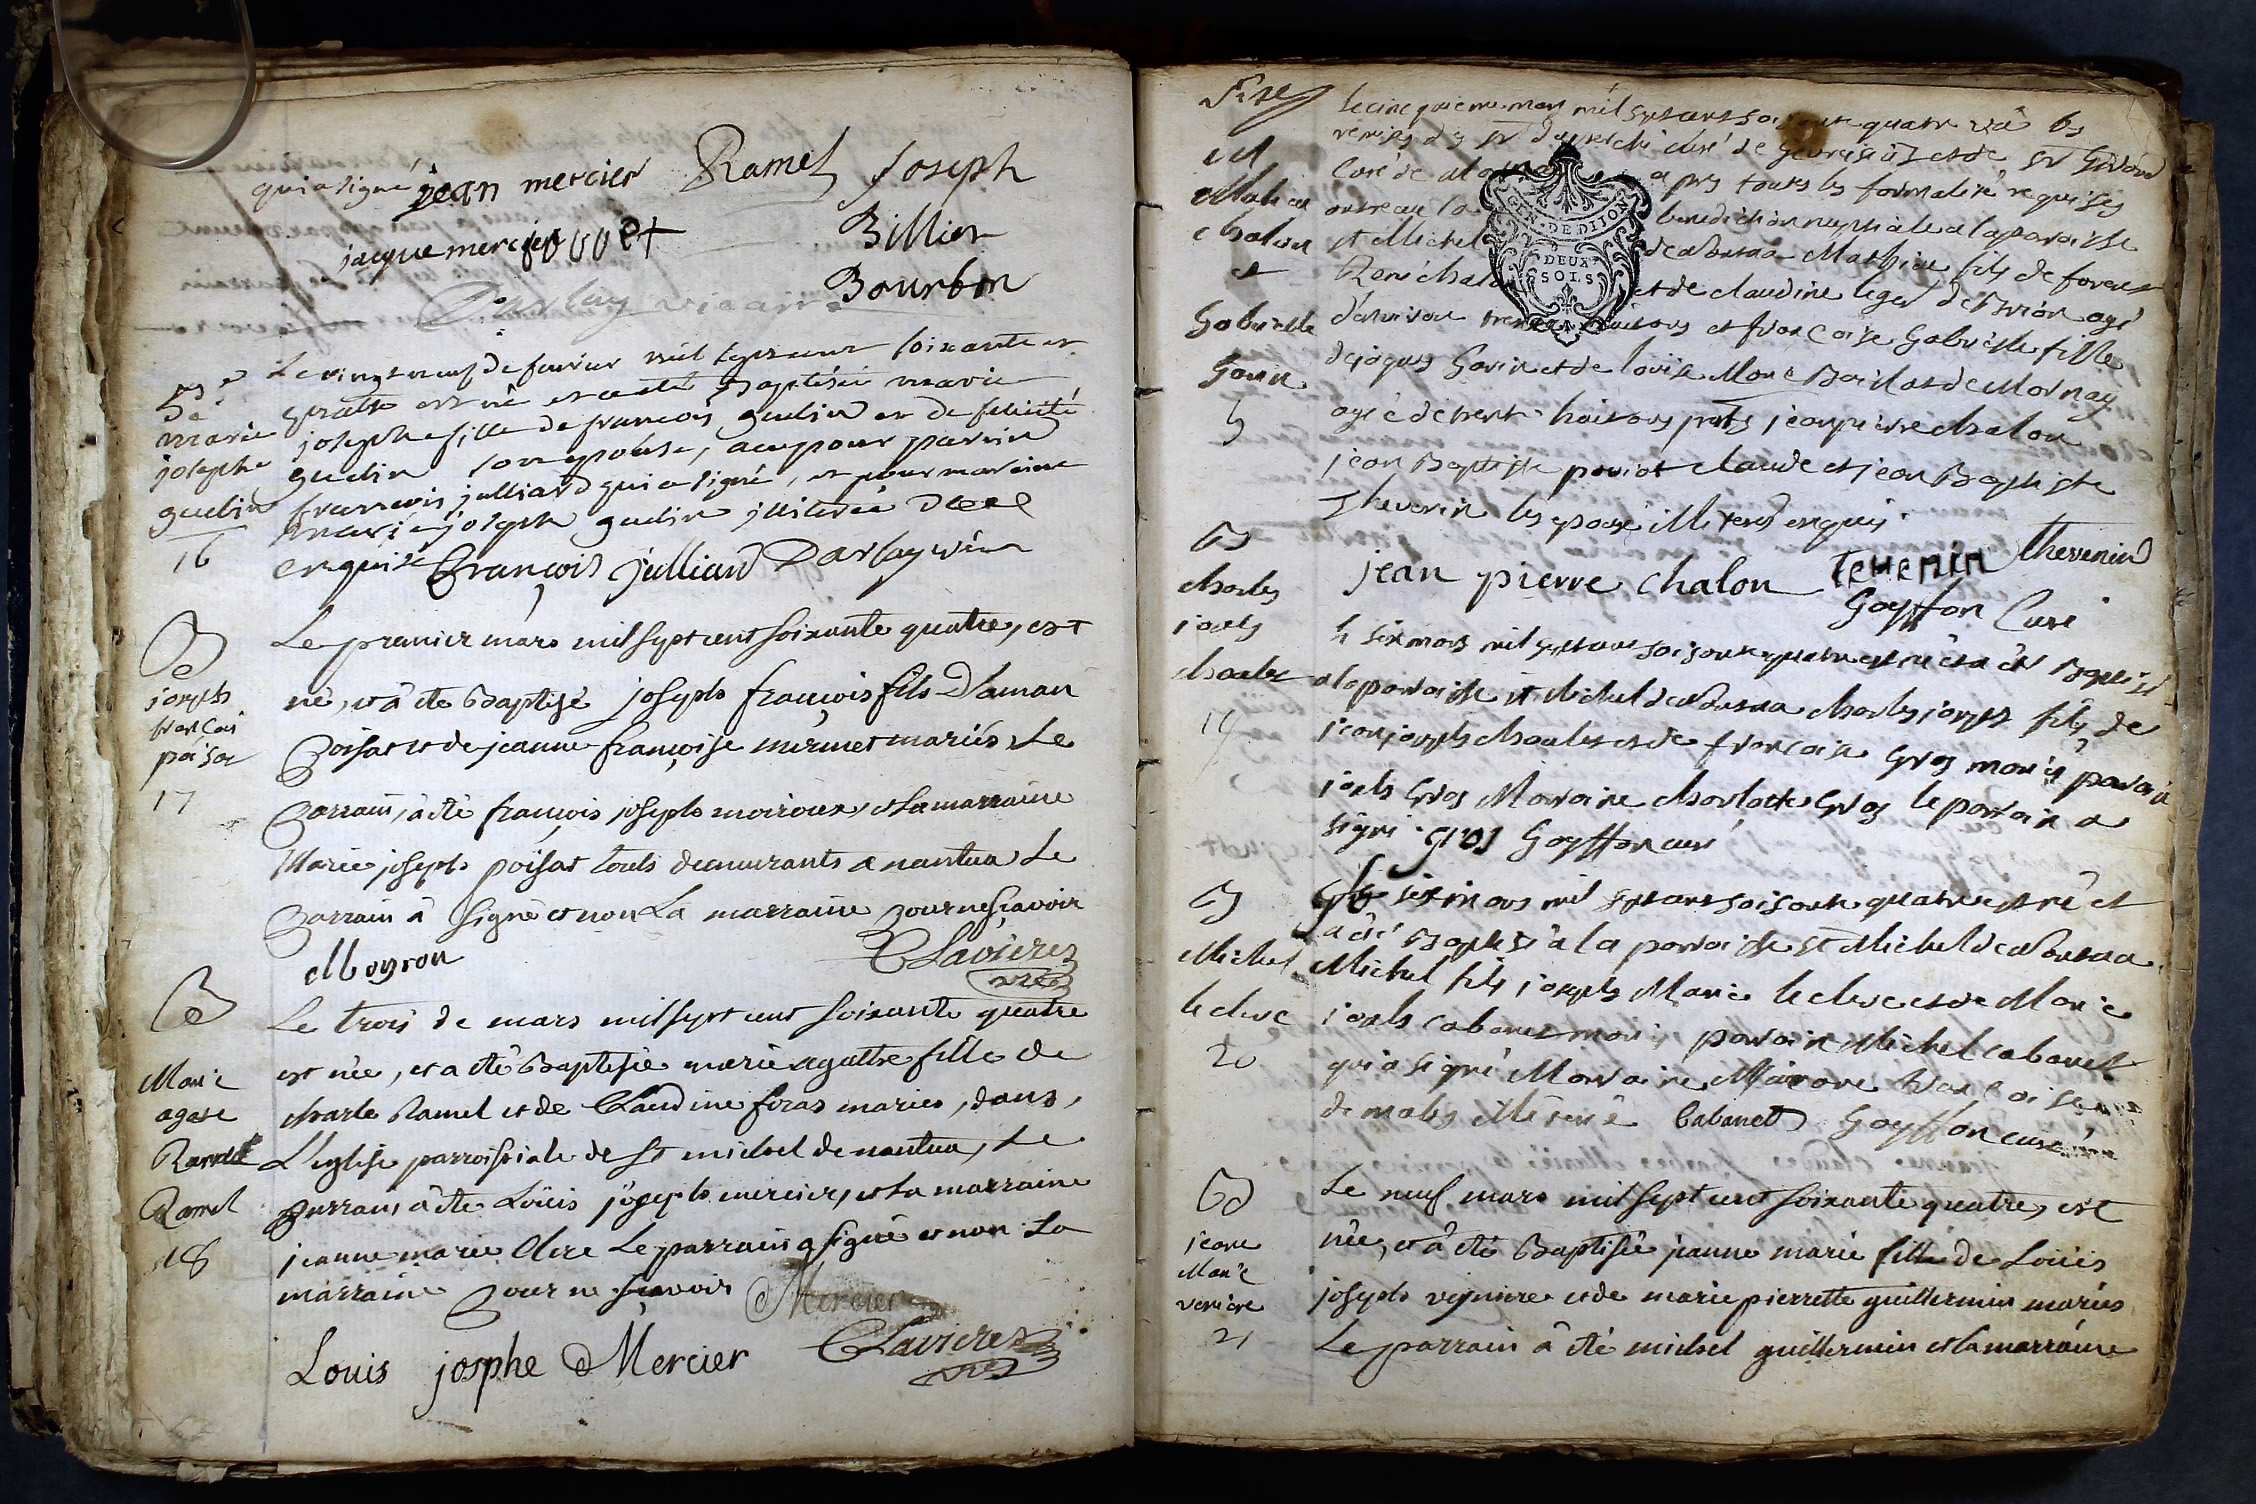 qui a signé jean mercier Ramel Joseph
jacque mercier Billiet
Bourbon
Darlay vicaire
Le vingt neuf de fevrier mil sept cent soixante et
B
de
marie
josephe
gudin
16
quatre est né et a eté Baptisée marie
josephe fille de francois gudin et de felicité
gudin son epouse, a eu pour parrin
francois julliard qui a signé, et pour marraine
marie joseph gudin illiterée
enquise François julliard Darlay vicaire
B
joseph
francois
poisat
17
Le premier mars mil sept cent soixante quatre, est
né, et â eté Baptisé joseph françois fils D'aman
poisat et de jeanne françoise mermet mariés Le
parrain, â été françois joseph moiroux, et la marraine
Marie joseph poisat touts demeurants a nantua Le
parrain â signé et non La marraine pour ne sçavoir
Moyron CLavieres
vic
B
Marie
agate
Ramel
18
Le trois de mars mil sept cent soixante quatre
est née, et a été Baptisée marie agathe fille de
charle Ramel et de Claudine foras mariés, dans,
L'eglise parroissiale de st michel de nantua, Le
parrain â été Loüis joseph mercier, et La marraine
jeanne marie Clere Le parrain a signé et non La
marraine pour ne sçavoir Mercier
Louis josphe Mercier CLavieres
vic
Le cinquieme mars mil sept cent soisante quatre vû les
remises de sr curé de et de sr
curé de apres toutes les formalité requises
benediction nuptiale a la paroisse
st Michel de Nantua Mathieu fils de
René chalon et de claudine leger de Brion agé
d'environ trente et francoise Gabrielle fille
de jaques Gorin et de loüise de Mornay
agée de trent huit ans prets jean pierre chalon
jean Baptiste claude et jean Baptiste
Thevenin les epoux illiterés enquis
Mathieu
chalon
et
Gabrielle
Gorin
5
jean pierre chalon TEVENIN thevenin
Goyffon Curé
B
charles
joseph
19
le six mars mil sept cent soisante quatre est né et a été Baptisé
a la paroisse st Michel de Nantua charles joseph fils de
jean joseph et de francoise Gros mariés parrain
joseph Gros Marraine charlotte Gros le parrain a
signé gros Goyffon curé
B
Michel
leclerc
20
le six mars mil sept cent soisante quatre est né et
a été Baptisé a la paroisse st Michel de Nantua
Michel fils joseph Marie leclerc et de Marie
joseph cabanet mariés parrain Michel cabanet
qui a signé Marraine francoise
illiterée Cabanet Goyffon curé
B
jeane
Marie
21
Le neuf mars mil sept cent soixante quatre, est
née, et â été Baptisée jeanne marie fille de Loüis
joseph et de marie pierrette guillermin mariés
Le parrain â été michel guillermin et la marraine
GEN. DE DIJON
DEUX
SOLS